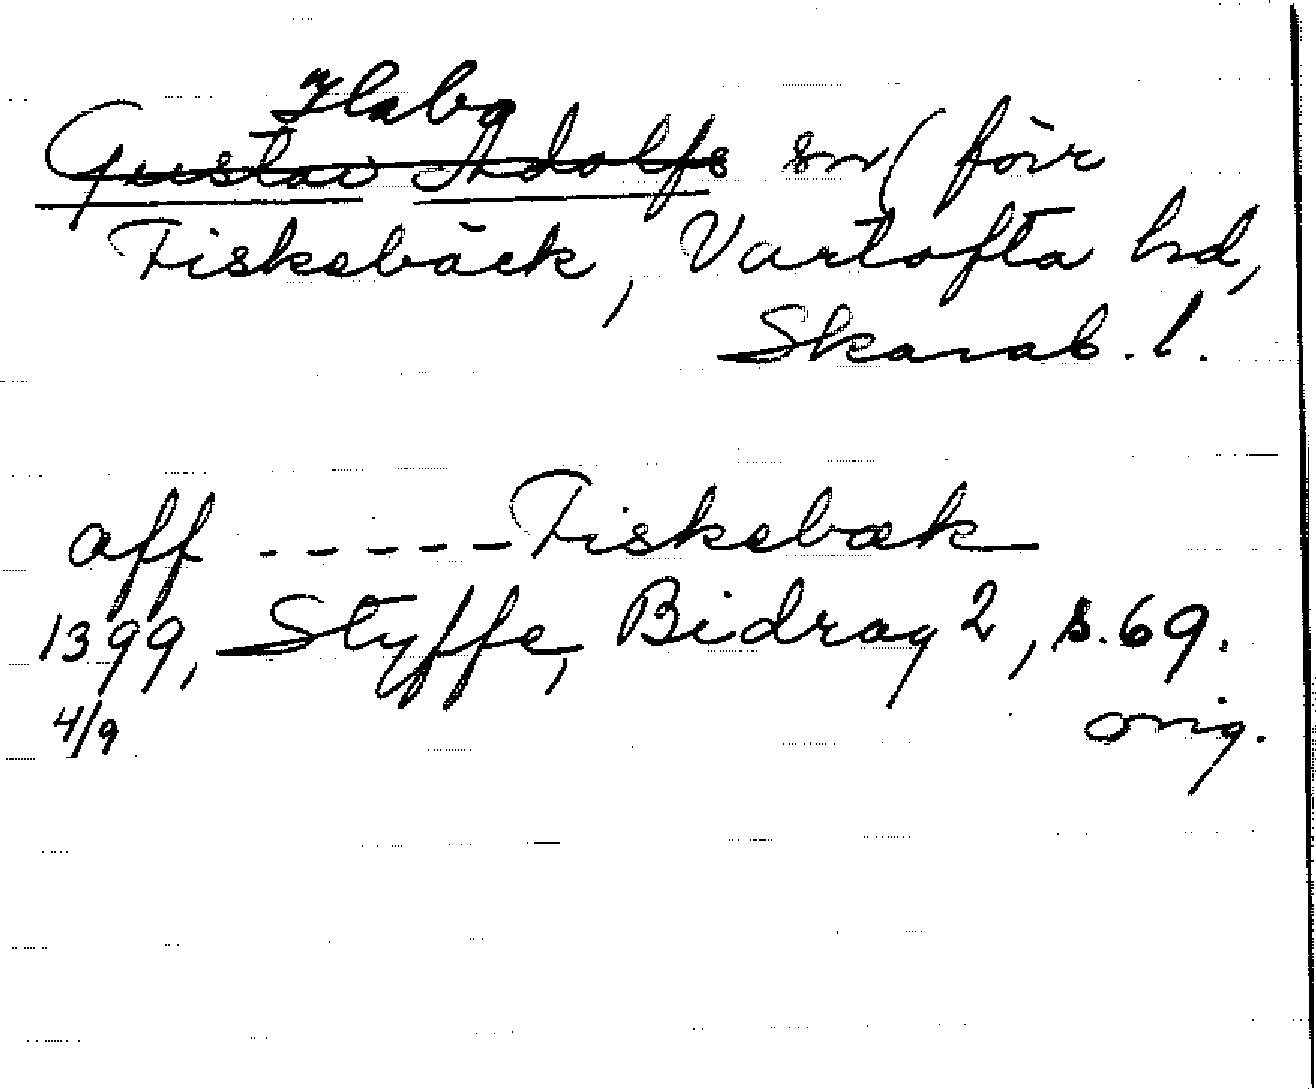 Habo
Gustav Adolfs sn (förr
Fiskebäck, Vartofta hd,
Skarab. l.
aff ----- Fiskebæk
1399, Styffe, Bidrag 2, s. 69.
4/9 orig.